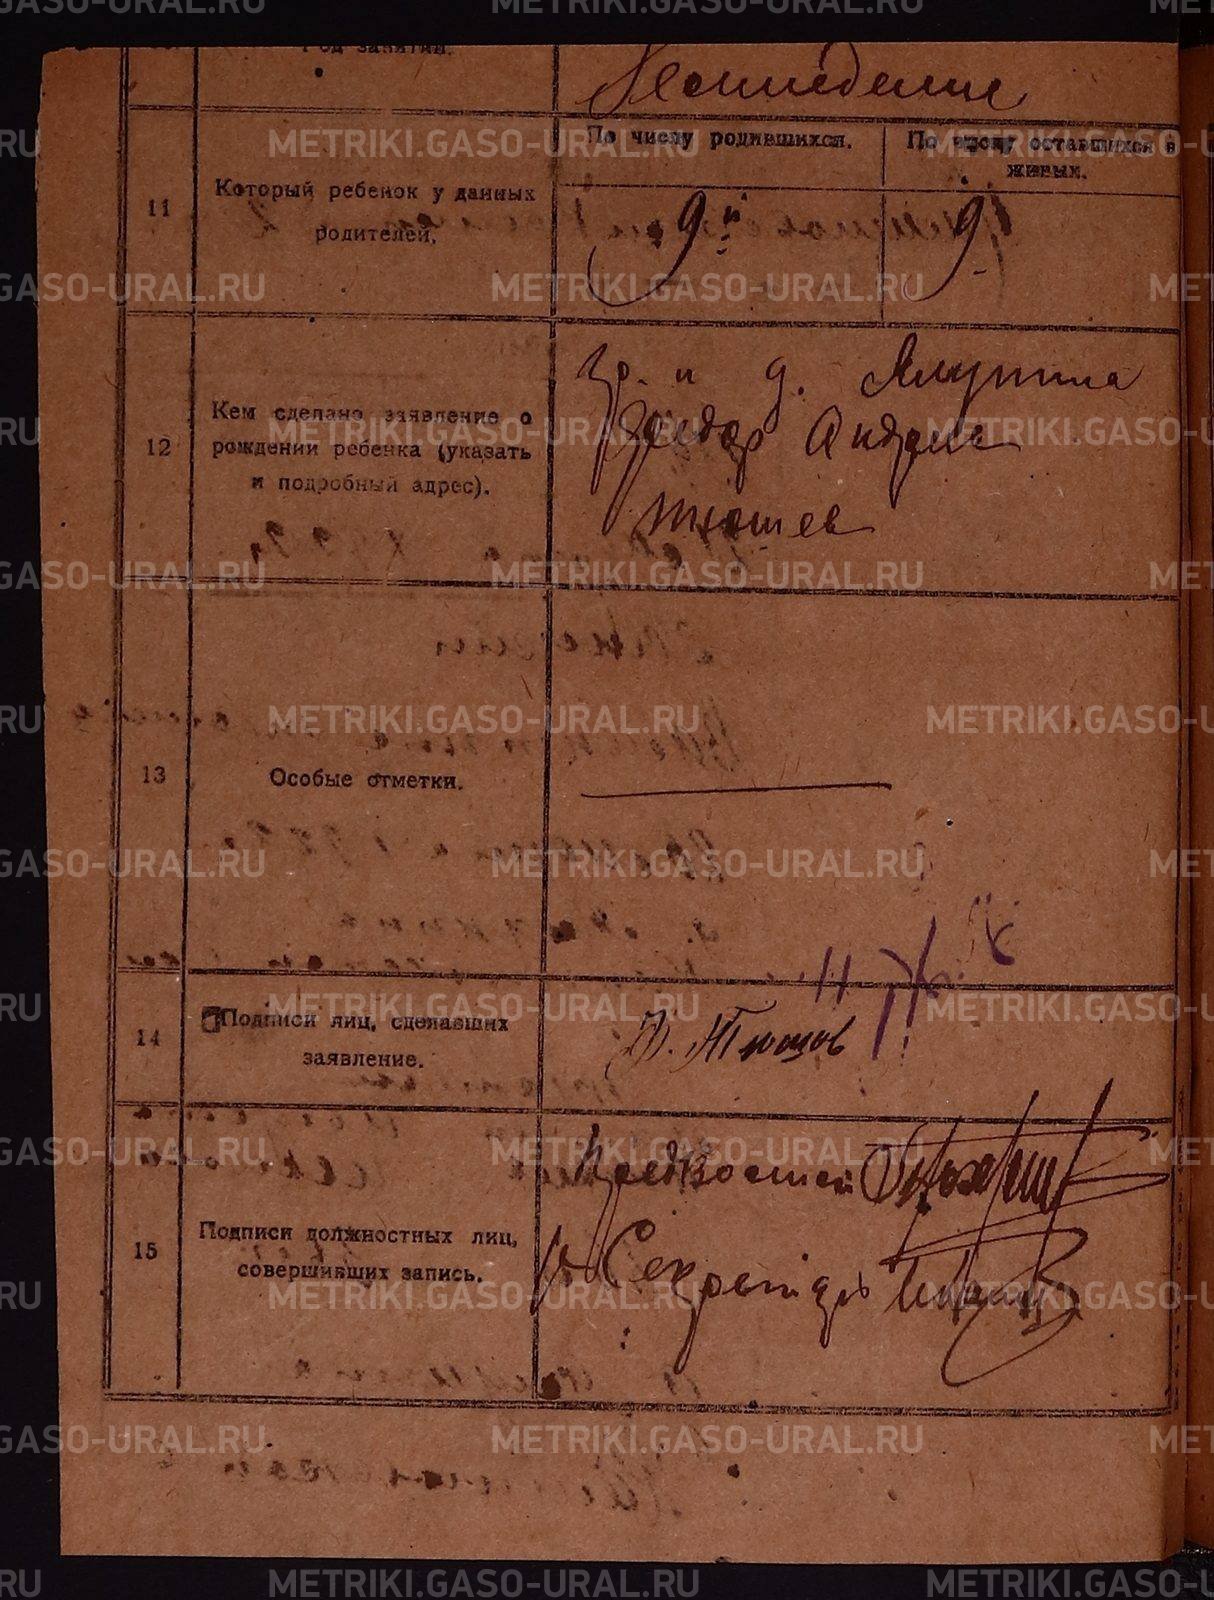 Род занятий.
Хлопоседение
По числу родившихся.
По числу оставшихся в живых.
11
Который ребенок у данных
родителей.
9й
9.
12
Кем сделано заявление о
рождении ребенка (указать
и подробный адрес).
гр. и д. Ялунина
Федор Андрее
Тюшев
13
Особые отметки.
14
Подписи лиц, сделавших
заявление.
Ф. Тюшов
15
Подписи должностных лиц,
совершивших запись.
Секретарь
METRIKI.GASO-URAL.RU